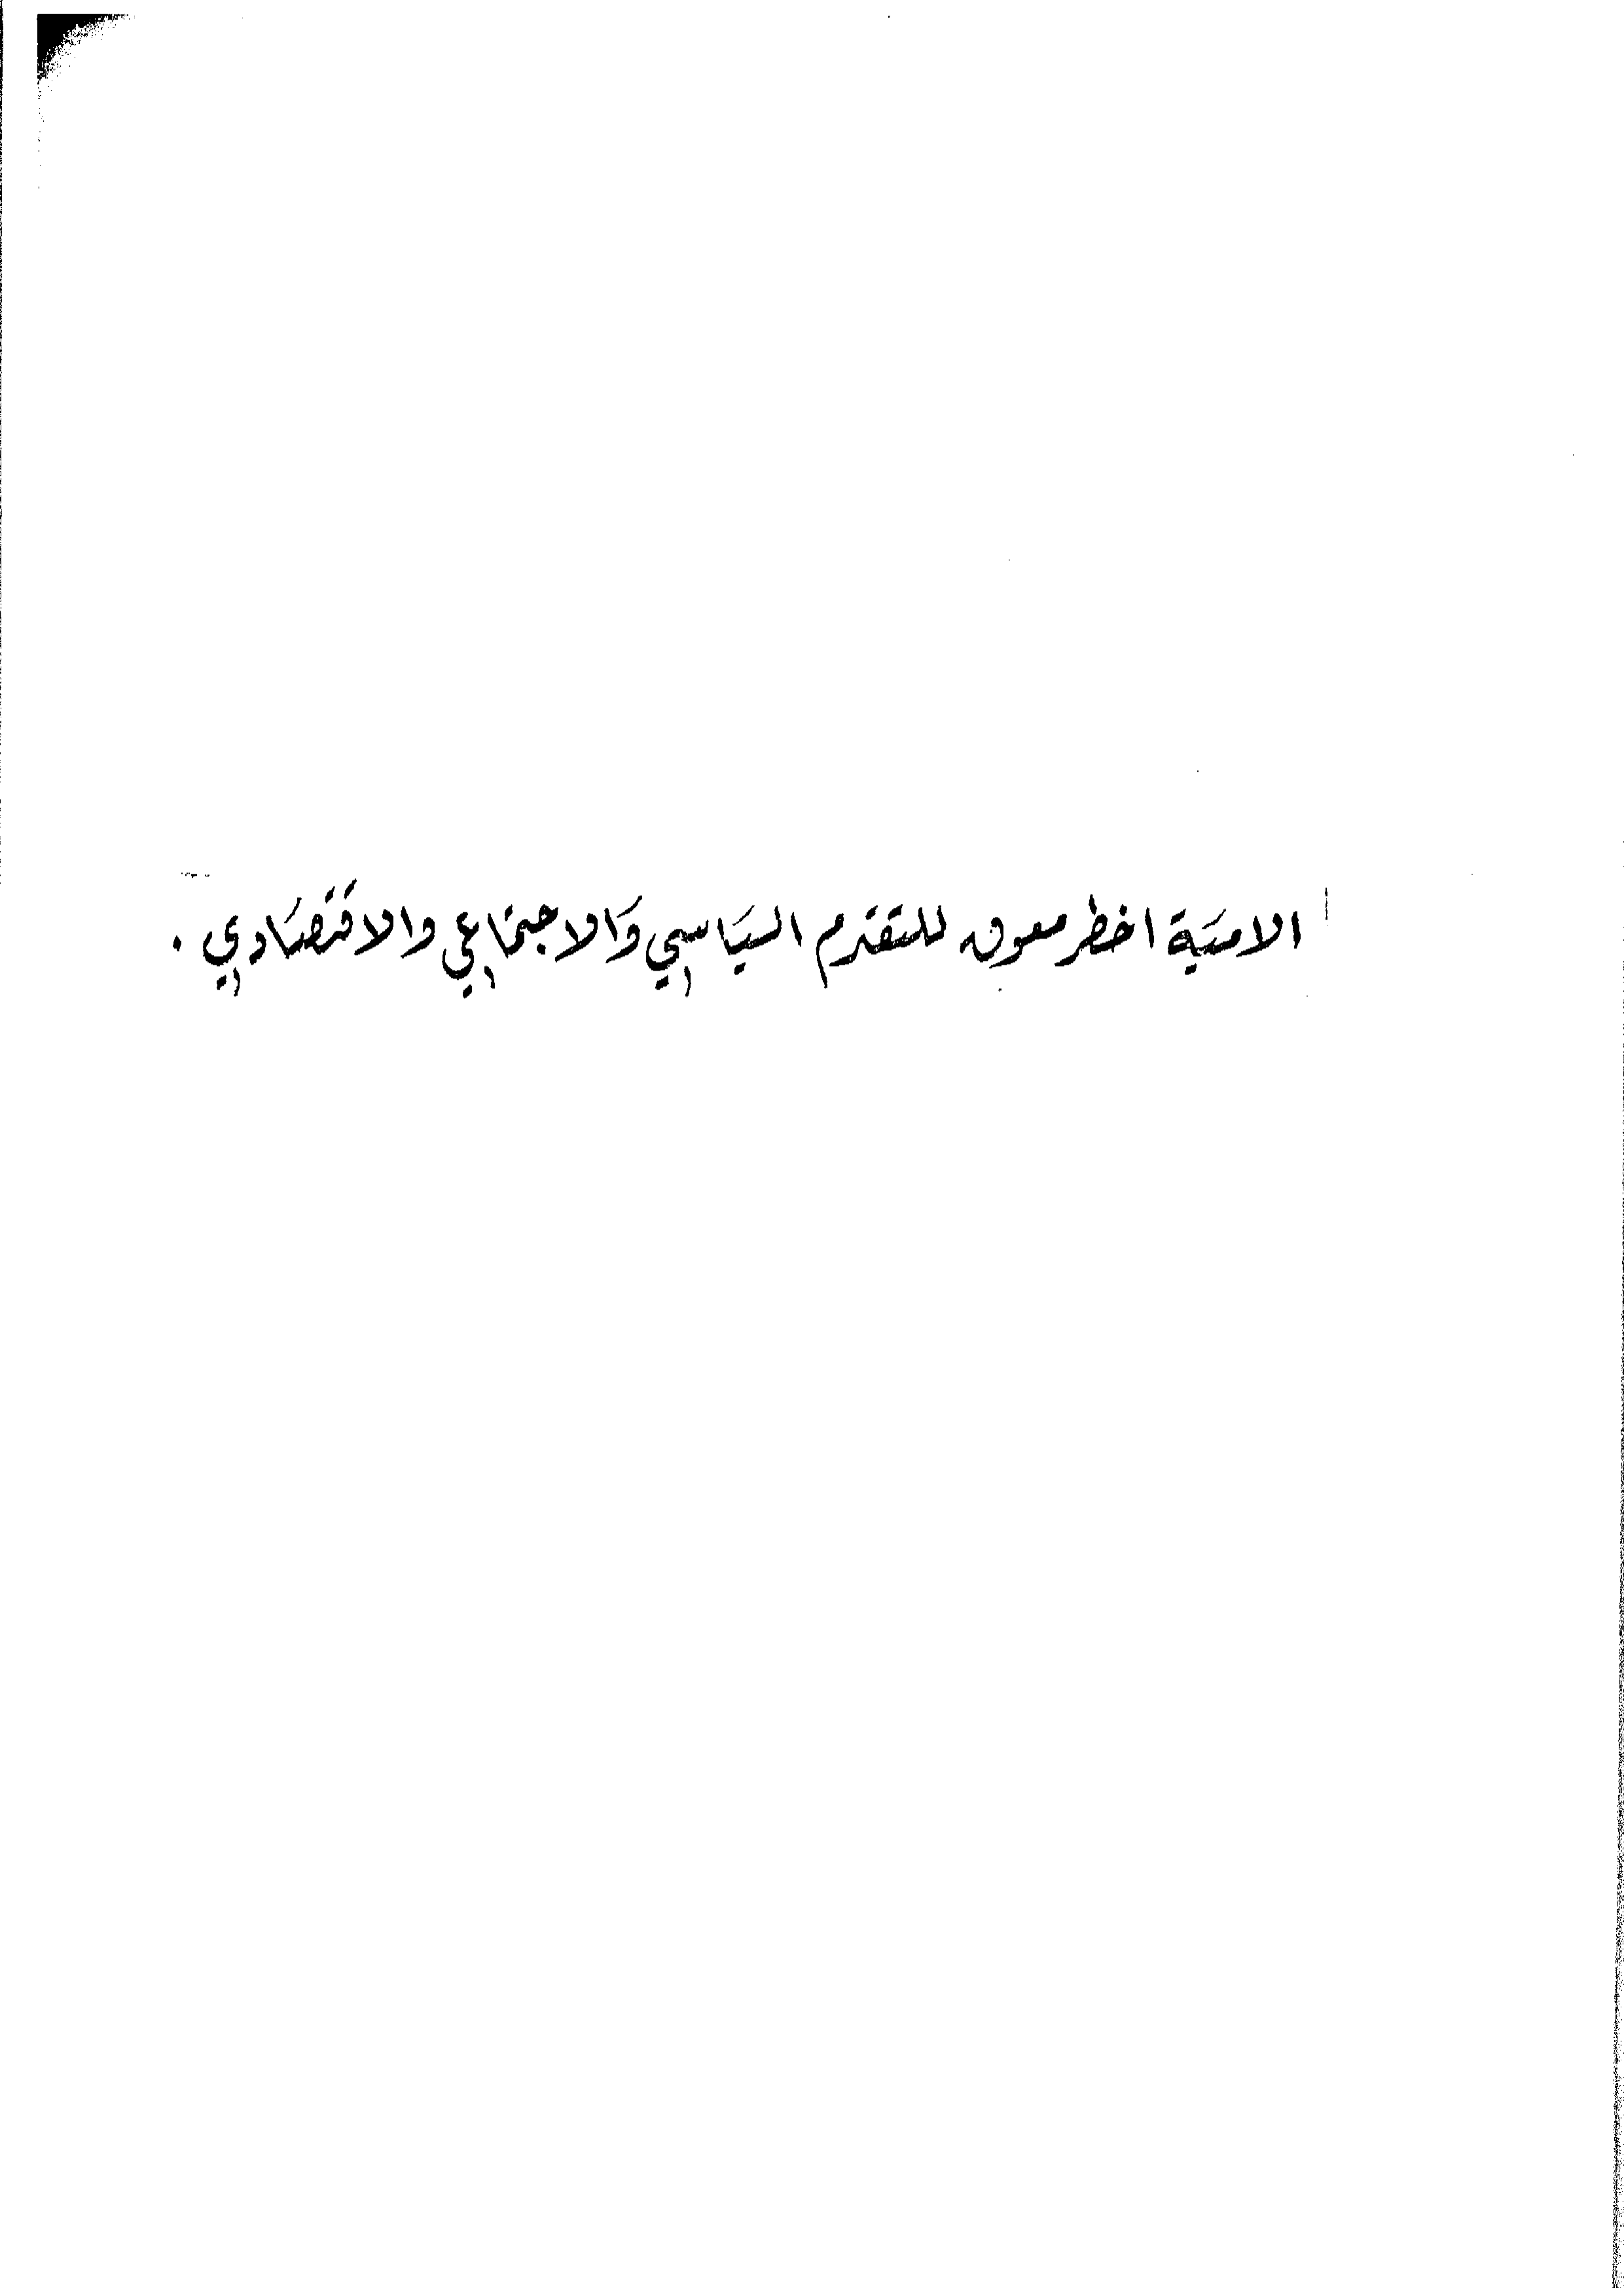 الاميَة اخطر معوق للتقدم السيَاسي وَالاجتماعي والاقتصَادي .